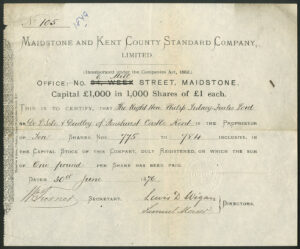 No 105
MAIDSTONE AND KENT COUNTY STANDARD COMPANY,
LIMITED
(Incorporated under the Companies Act, 1862.)
OFFICE: No. WEEK STREET, MAIDSTONE.
Capital £1,000 in 1,000 Shares of £1 each.
THIS IS TO CERTIFY, THAT The Right Hon. Philip Sidney Foulis Lord
De L'Isle & Dudley of Penshurst Castle Kent IS THE PROPRIETOR
OF Ten SHARES NOS 775 TO 784 INCLUSIVE, IN
THE CAPITAL STOCK OF THIS COMPANY, DULY REGISTERED, ON WHICH THE SUM
OF One pound PER SHARE HAS BEEN PAID.
DATED 30th June 1876
SECRETARY. Lewis D Wigan
DIRECTORS.